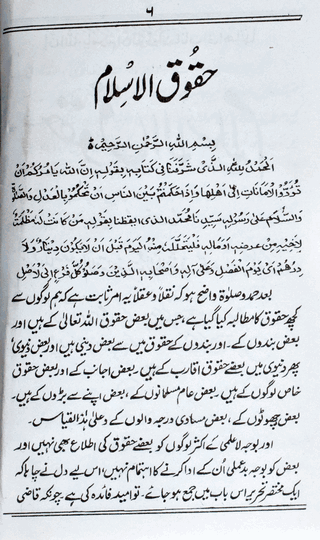 ۶
حقوق الاسلام
بِسْمِ اللّٰهِ الرَّحْمٰنِ الرَّحِيْمِ ؕ
اَلْحَمْدُ لِلّٰهِ الَّذِىْ شَرَّفَنَا فِىْ كِتَابِهٖ بِقَوْلِهٖ اِنَّ اللّٰهَ يَاْمُرُكُمْ اَنْ
تُؤَدُّوا الْاَمَانَاتِ اِلٰى اَهْلِهَا وَاِذَا حَكَمْتُمْ بَيْنَ النَّاسِ اَنْ تَحْكُمُوْا بِالْعَدْلِ وَالصَّلٰوةُ
وَالسَّلَامُ عَلٰى رَسُوْلِهٖ سَيِّدِنَا مُحَمَّدِ الَّذِىْ اَيْقَظَنَا بِقَوْلِهٖ مَنْ كَانَتْ لَهٗ مَظْلِمَةٌ
لِاَخِيْهِ مِنْ عِرْضِهٖ اَوْ مَالِهٖ فَلْيَتَحَلَّلْهُ مِنْهُ الْيَوْمَ قَبْلَ اَنْ لَا يَكُوْنَ دِيْنَارٌ وَّلَا
دِرْهَمٌ اَىْ يَوْمَ الْفَصْلِ وَعَلٰى اٰلِهٖ وَاَصْحَابِهِ الَّذِيْنَ وَصَلُوْا كُلَّ فَرْعٍ اِلَى الْاَصْلِ
بعد حمد و صلوٰۃ واضح ہو کہ نقلاً و عقلاً یہ امر ثابت ہے کہ ہم لوگوں سے
کچھ حقوق کا مطالبہ کیا گیا ہے، جس میں بعض حقوق اللہ تعالیٰ کے ہیں اور
بعض بندوں کے۔ اور بندوں کے حقوق میں سے بعض دینی ہیں اور بعض دنیوی،
پھر دنیوی میں بعضے حقوق اقارب کے ہیں۔ بعض اجانب کے اور بعض حقوق
خاص لوگوں کے ہیں۔ بعض عام مسلمانوں کے، بعض اپنے سے بڑوں کے ہیں۔
بعض چھوٹوں کے، بعض مساوی درجہ والوں کے وعلیٰ ہذا القیاس۔
اور بوجہ لاعلمی کے اکثر لوگوں کو بعضے حقوق کی اطلاع بھی نہیں اور
بعض کو بوجہ بدعملی اُن کے ادا کرنے کا اہتمام نہیں، اس لیے دل نے چاہا کہ
ایک مختصر تحریر اس باب میں جمع ہو جائے۔ تو امید فائدہ کی ہے چونکہ قاضی